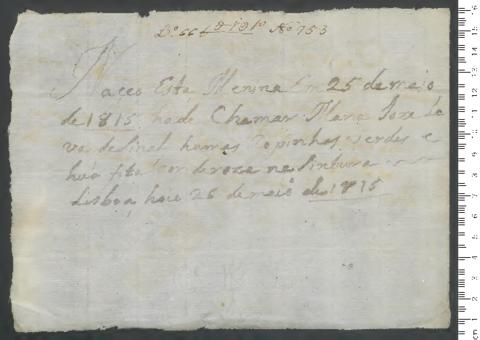 Nº 753
Naceo Esta Menina Em 25 de maio
de 1815 hade Chamar Maria Joze Le
va de sinal humas Ropinhas verdes e
huã fita cor de roza na Sintura
Lisboa, hoie 26 de maio de 1815